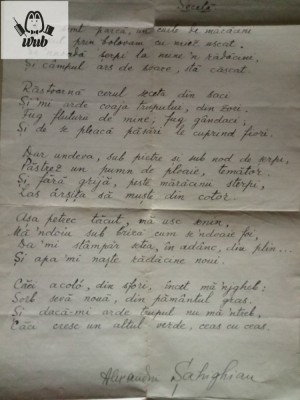 wrb
Secetă
parcă, un caste de măcăcini
prin bolovani cu nuol uscat.
șerpi la mine'n rădăcini,
Și câmpul ars de soare, stă căscat.
Răstoarnă cerul seceta din saci
Și'mi arde coaja trupului, din zori.
Fug fluturii de mine, fug gândaci
Și de se pleacă păsări le cuprind fiori.
Dar undeva, sub pietre și sub nod de șerpi,
Păstrez un pumn de ploaie, temător.
Și fără grijă, peste mărăcinii sterpi,
Las arșița să muște din cotor.
Așa petrec tăcut, mă usc senin,
Mă'ndoiu sub briză cum se'ndoaie foi,
Da'mi stâmpăr setea, în adânc, din plin.
Și apa'mi naște rădăcini noui.
Căci acolo, din sfori, încet mă'njgheb:
Sorb sevă nouă, din pământul gras.
Și dacă-mi arde trupul nu mă'ntreb,
Căci cresc un altul verde, ceas cu ceas.
Alexandru Șahighian